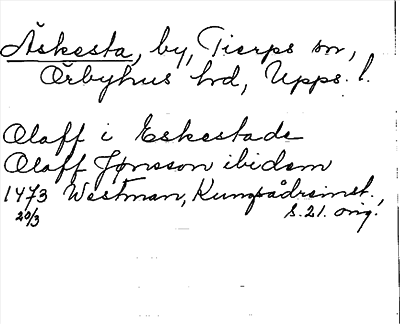 Äskesta, by, Tierps sn,
Örbyhus hd, Upps. l.
Olaff i Eskestade
Olaff Jönsson ibidem
1473 Westman, Kungsådreinst.,
20/3 s. 21. orig.